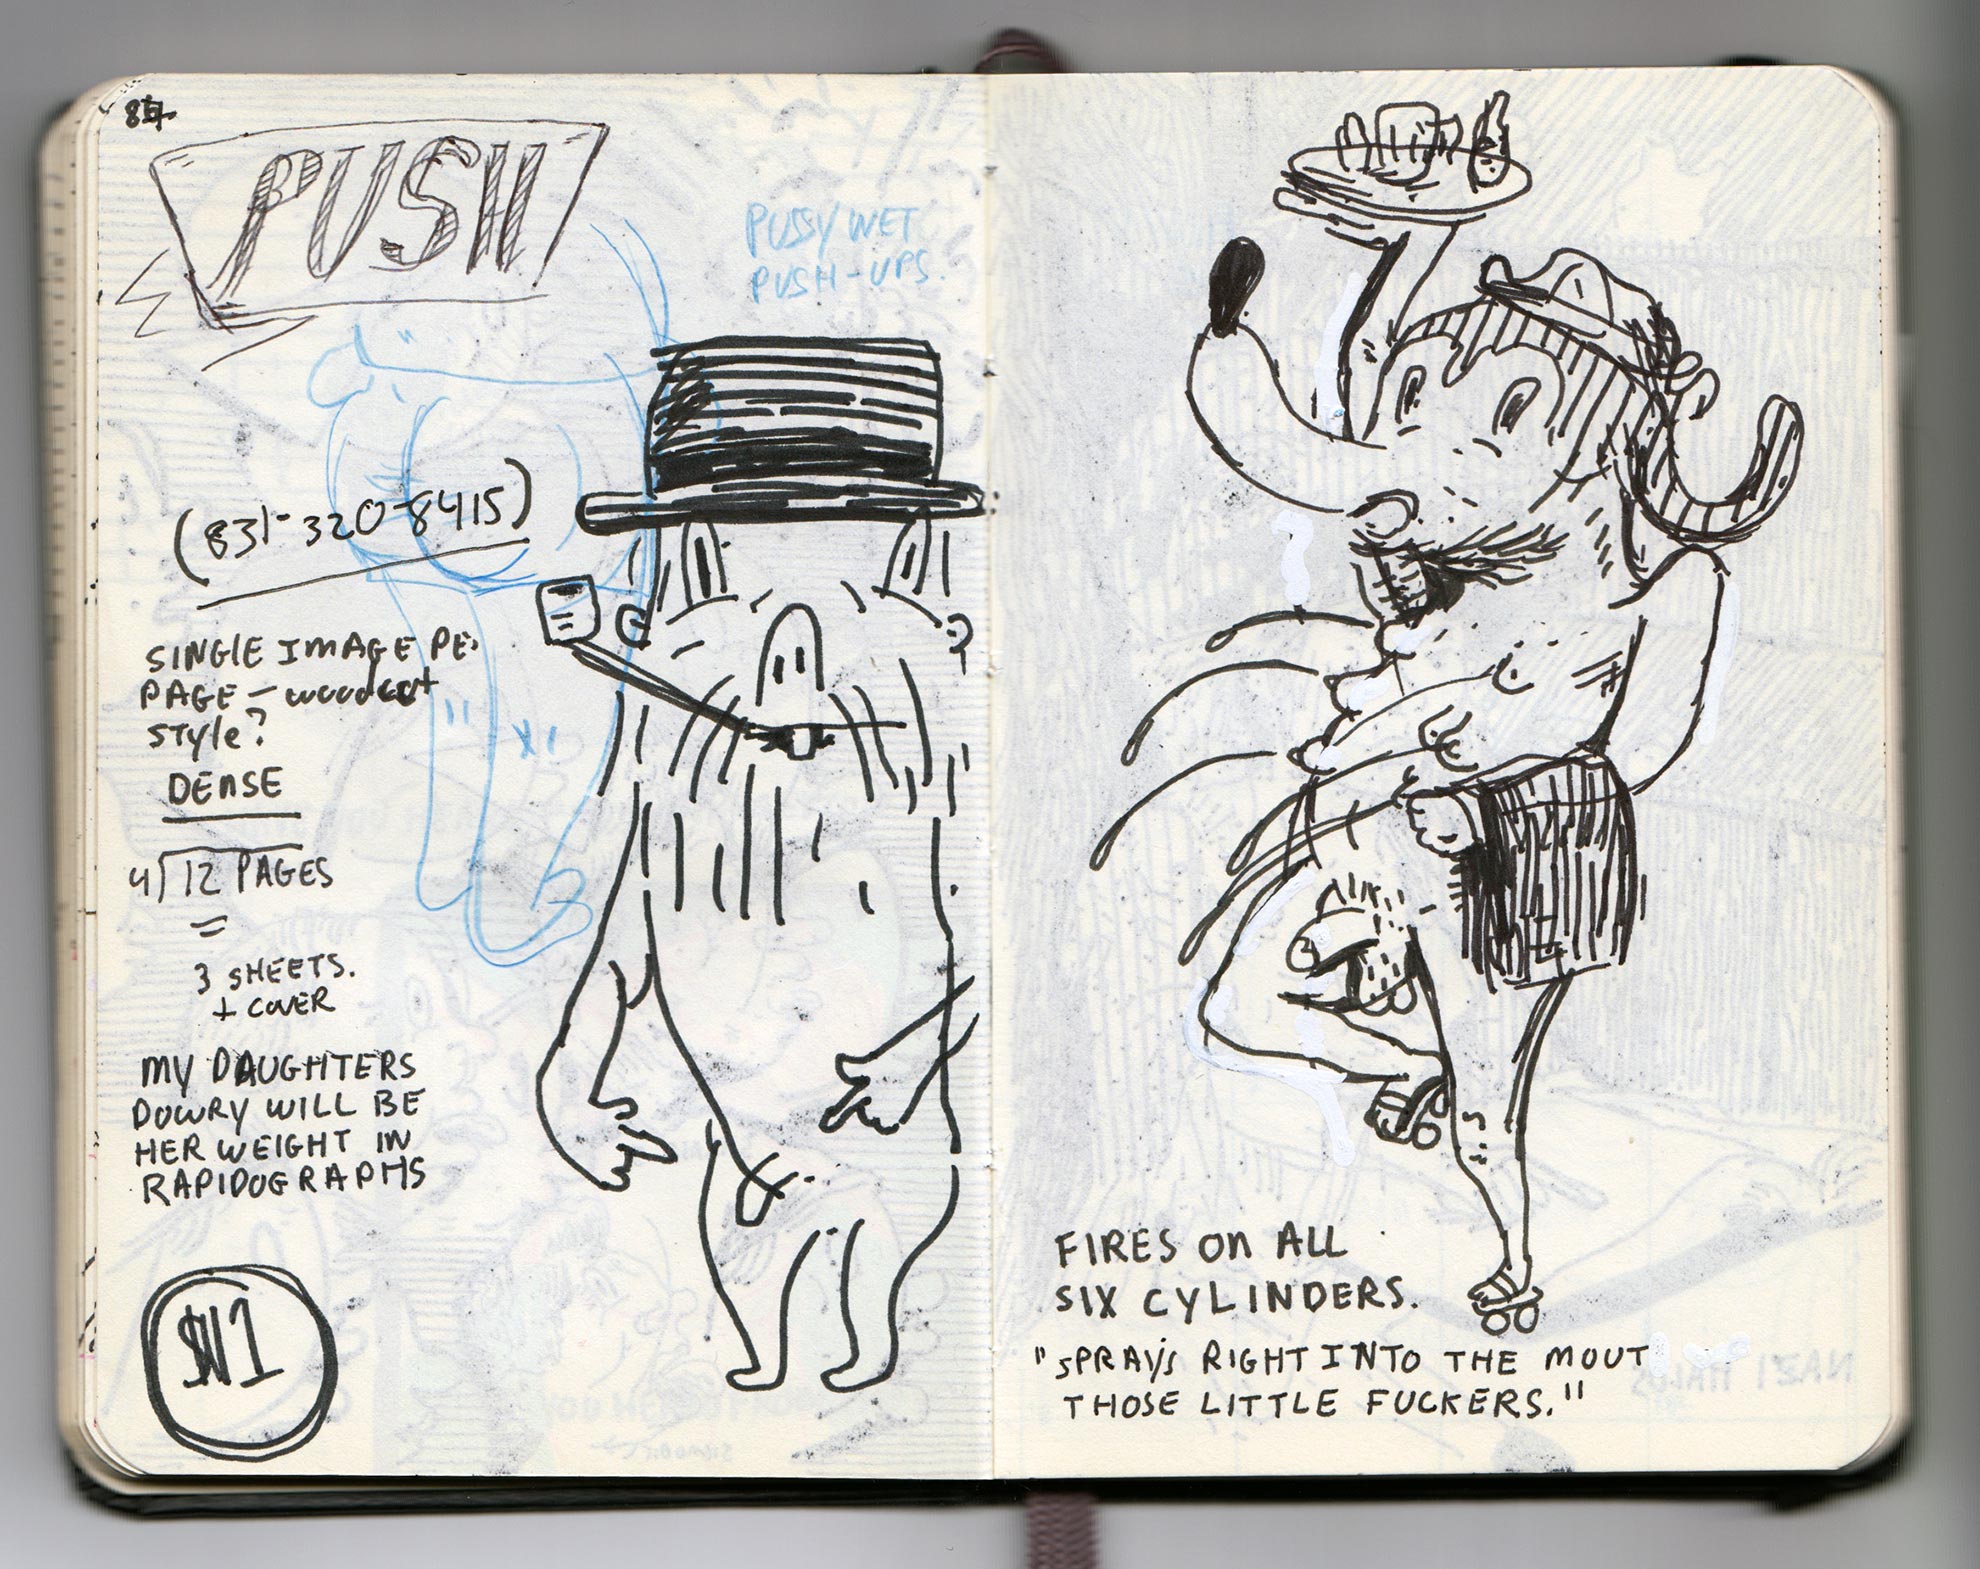 PUSH
PUSSY WET
PUSH-UPS.
(831-320-8415)
SINGLE IMAGE PE
PAGE - WOODCUT
STYLE?
DENSE
4)12 PAGES
=
3 SHEETS.
+ COVER
MY DAUGHTERS
DOWRY WILL BE
HER WEIGHT IN
RAPIDOGRAPHS
FIRES ON ALL
SIX CYLINDERS.
"SPRAYS RIGHT INTO THE MOUT
THOSE LITTLE FUCKERS."